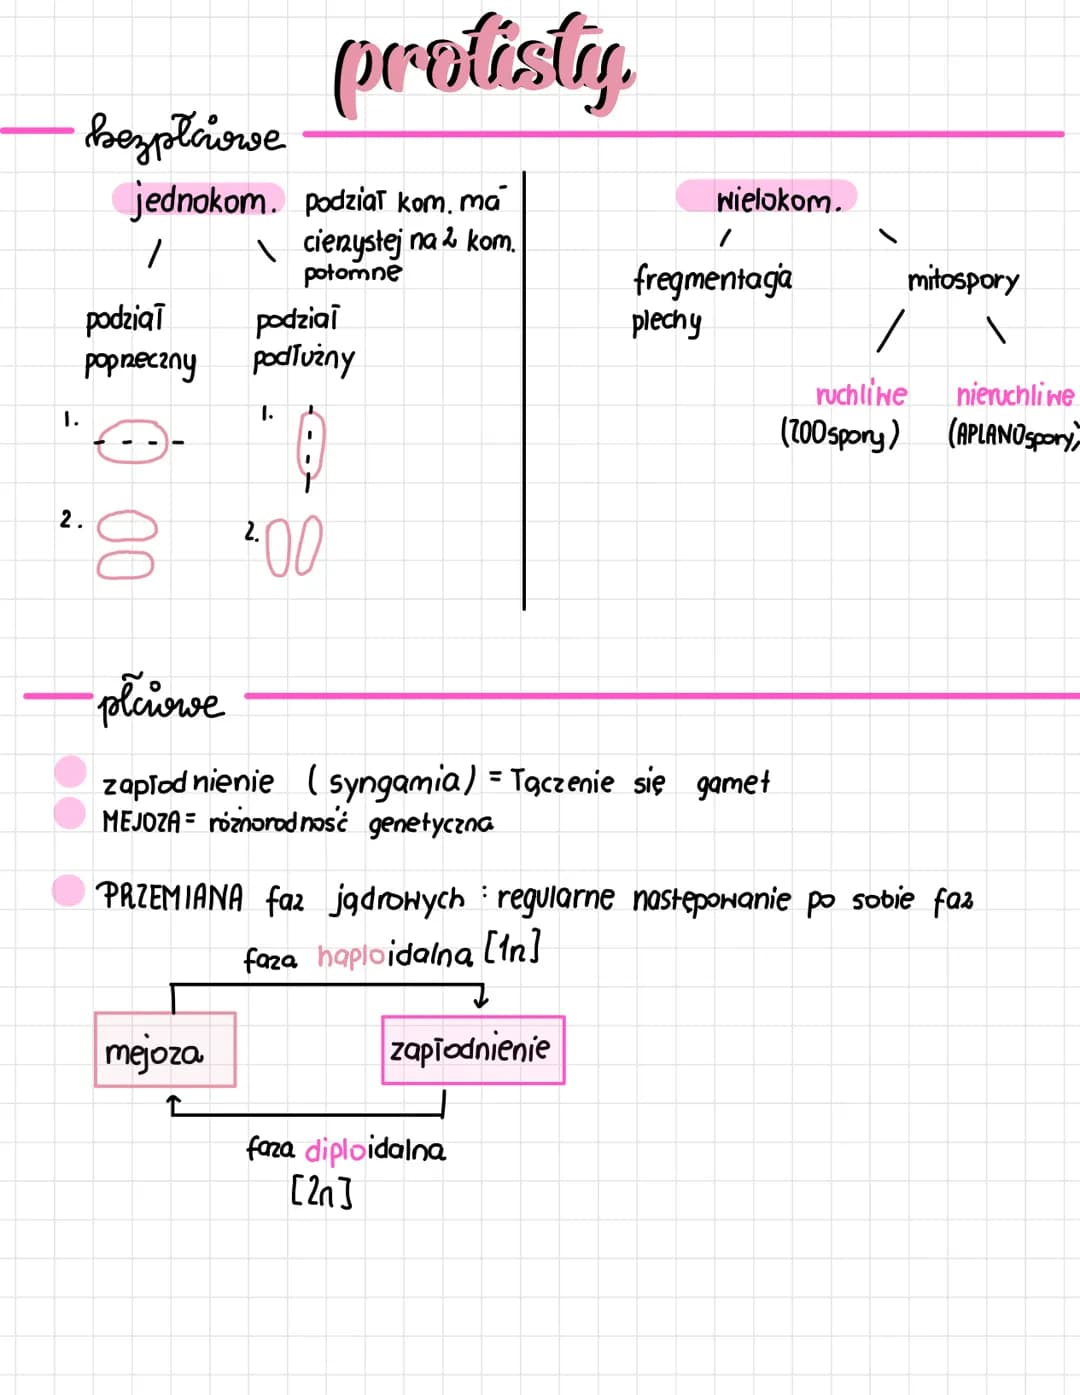 protisty
bezpłciowe
jednokom.
podział kom. ma
cierzystej na 2 kom.
potomne
podział
poprzeczny
podział
podłużny
1.
1.
2.
2.
wielokom.
fregmentacja
plechy
mitospory
ruchliwe
(ZOOspory)
nieruchliwe
(APLANOspory)
płciowe
zapłodnienie (syngamia) = łączenie się gamet
MEJOZA = różnorodność genetyczna
PRZEMIANA faz jądrowych : regularne następowanie po sobie faz
faza haploidalna [1n]
mejoza
zapłodnienie
faza diploidalna
[2n]